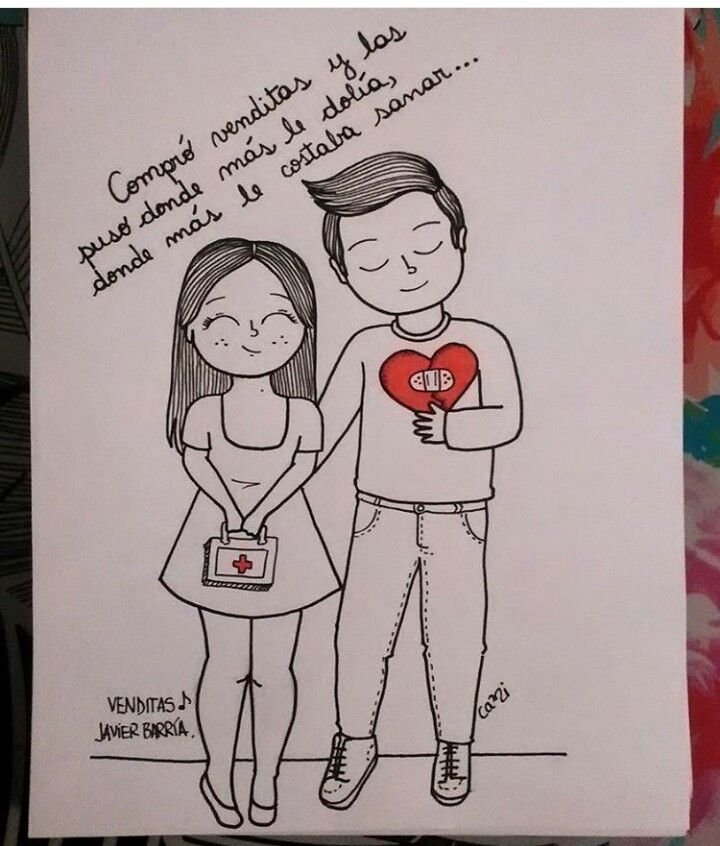 Compró venditas y las
puso donde más le dolía,
donde más le costaba sanar...
VENDITAS♪
JAVIER BARRÍA.
cami